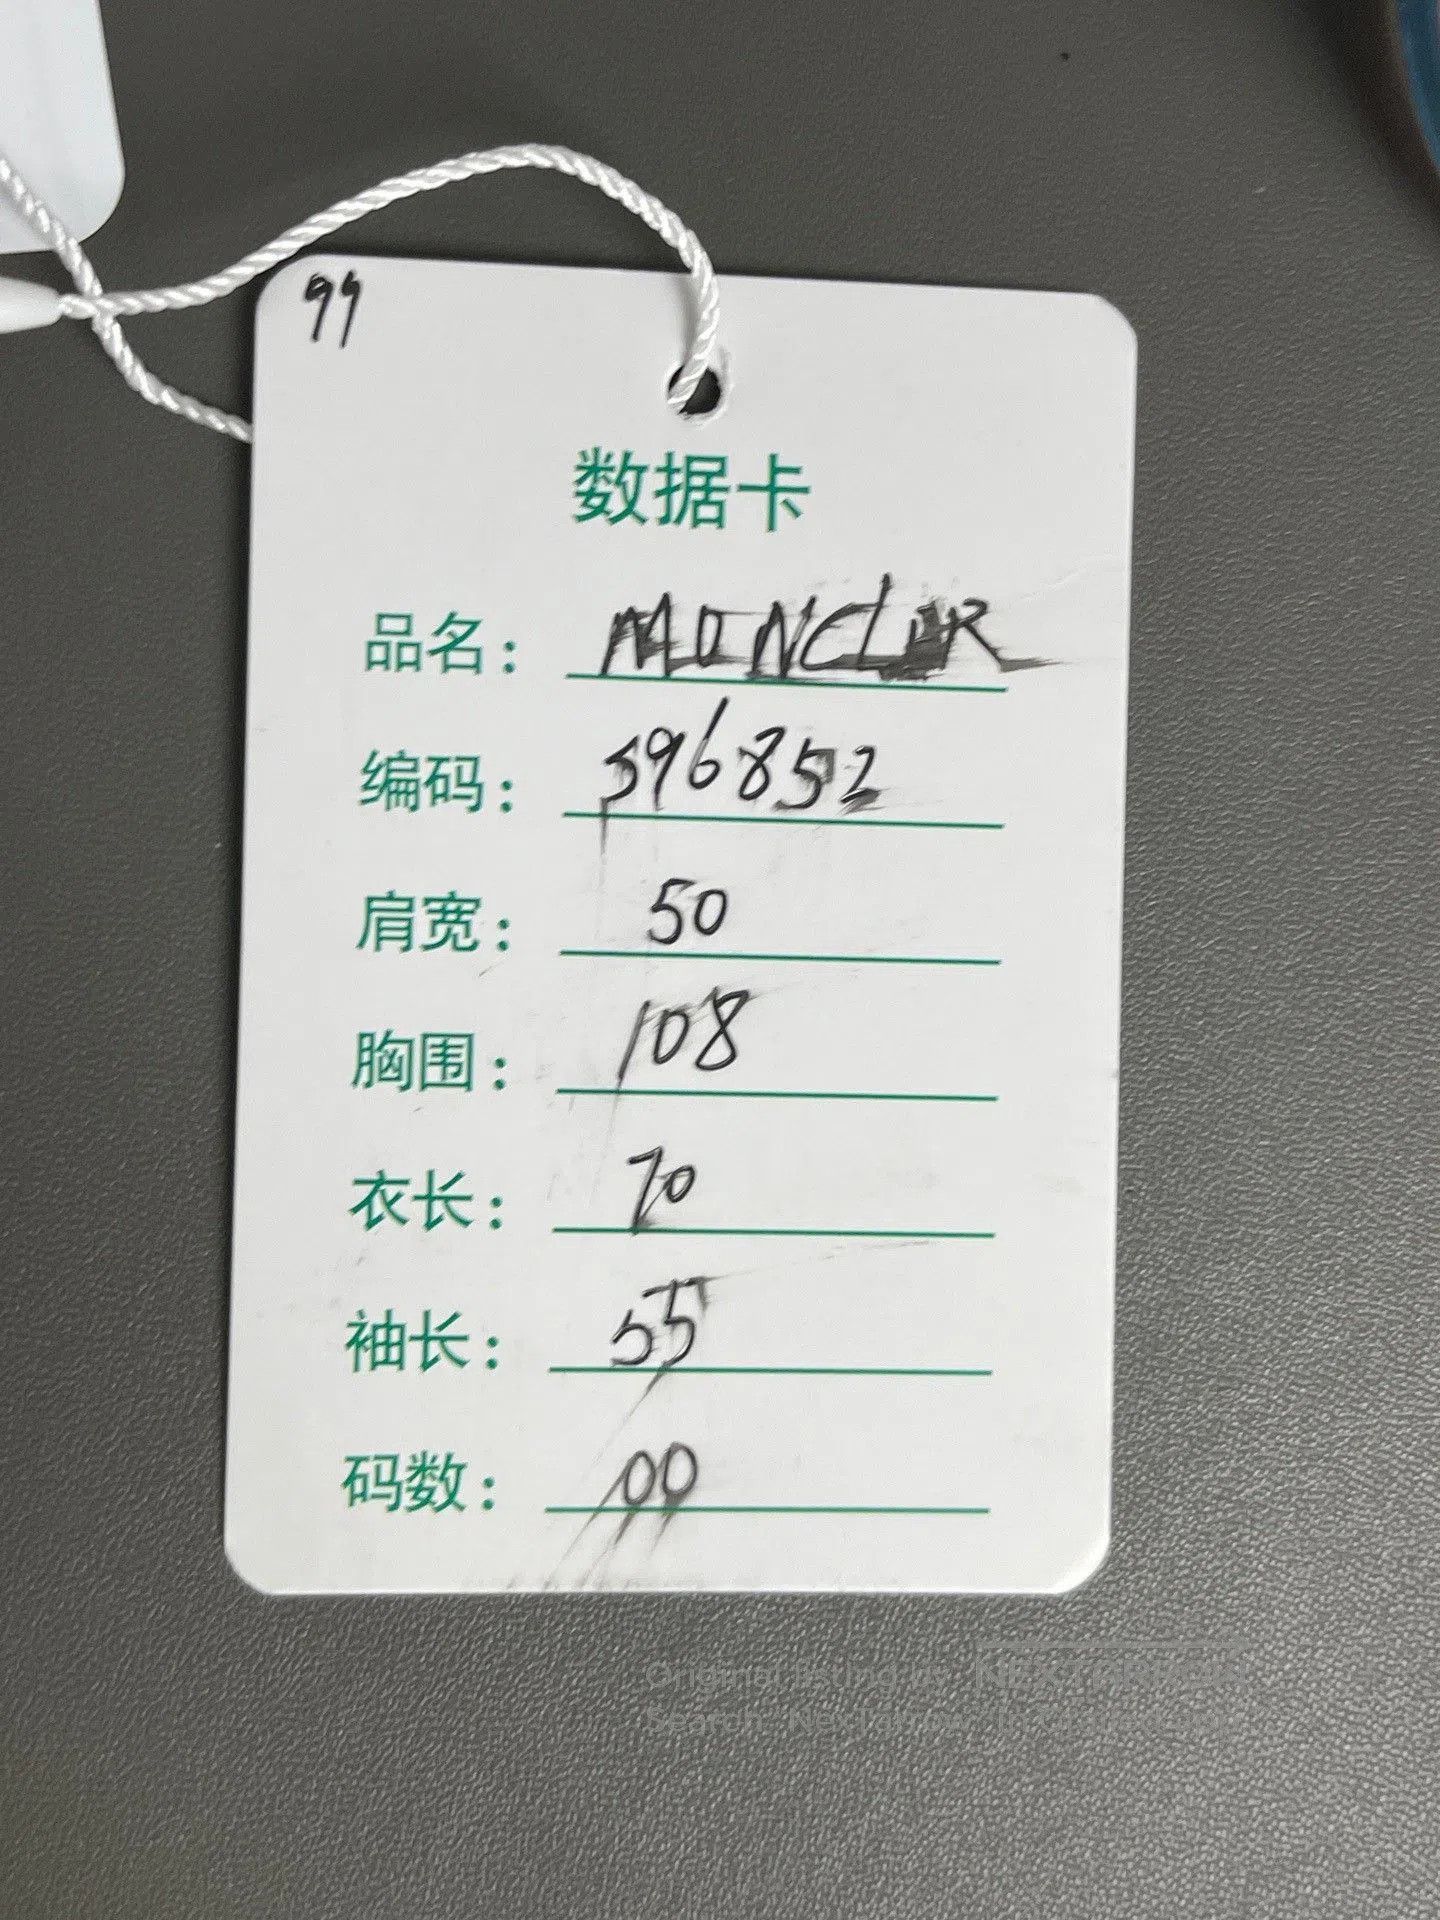 99
数据卡
品名： MONCLER
编码： 596852
肩宽： 50
胸围： 108
衣长： 70
袖长： 55
码数： 00
Original listing by
Search "Nextarrow" in